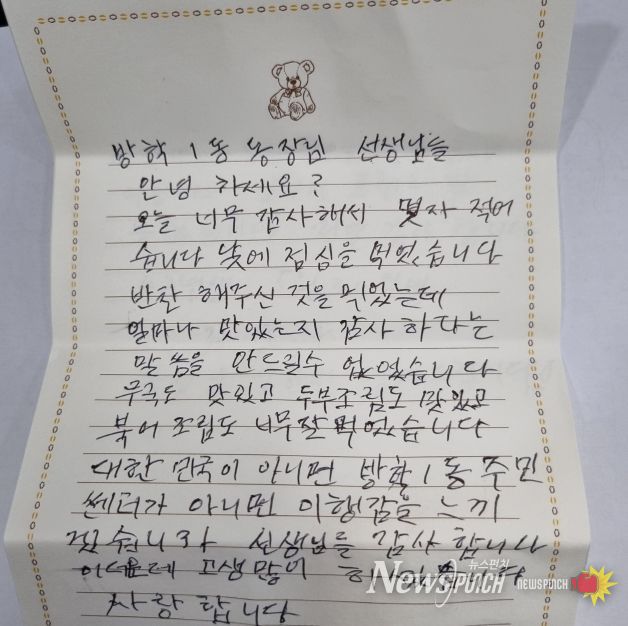 방학 1동 동장님 선생님들
안녕 하세요?
오늘 너무 감사해서 몇자 적어
습니다 낮에 점심을 먹었습니다
반찬 해주신 것을 먹었는데
얼마나 맛있는지 감사 하다는
말씀을 안드릴수 없었습니다
무국도 맛있고 두부조림도 맛있고
북어 조림도 너무잘먹었습니다
대한 민국이 아니면 방학1동주민
쎈터가 아니면 이행감을 느끼
겠습니까 선생님들 감사 합니다
이더운데 고생많이
사랑 합니다
뉴스펀치
NEWSPUNCH